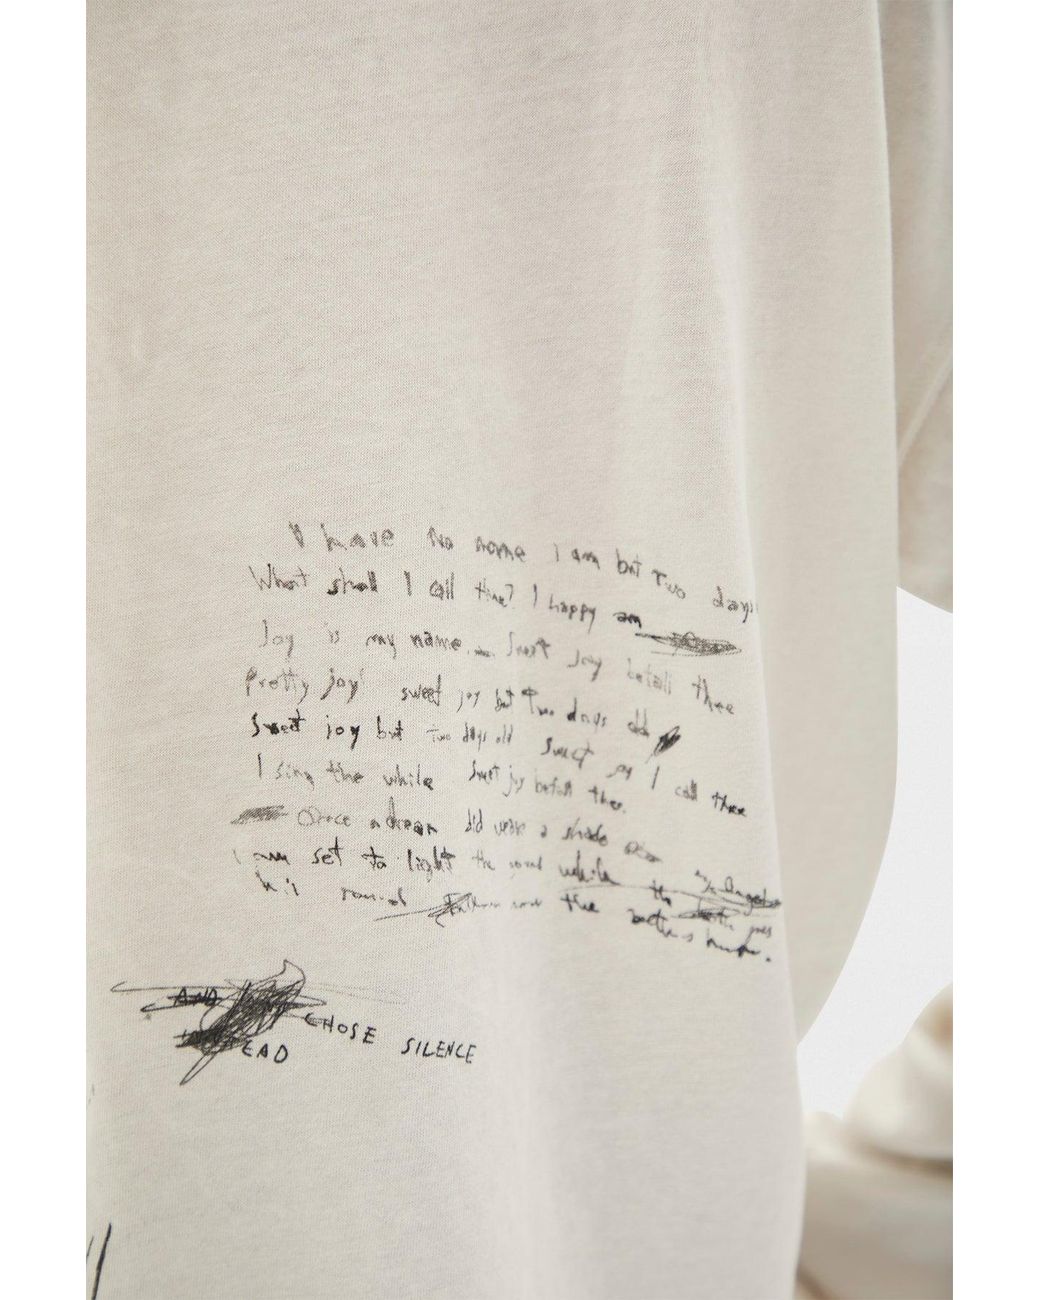 I have no name I am but two days
What shall I call thee? I happy am
Joy is my name. Sweet joy befall thee
Pretty joy! sweet joy but two days old
Sweet joy but two days old sweet joy I call thee
I sing the while sweet joy befall thee.
Once a dream did weave a shade
my Angel
I am set to light the ground while the beetle goes
his round the
AND CHOSE SILENCE
EAD